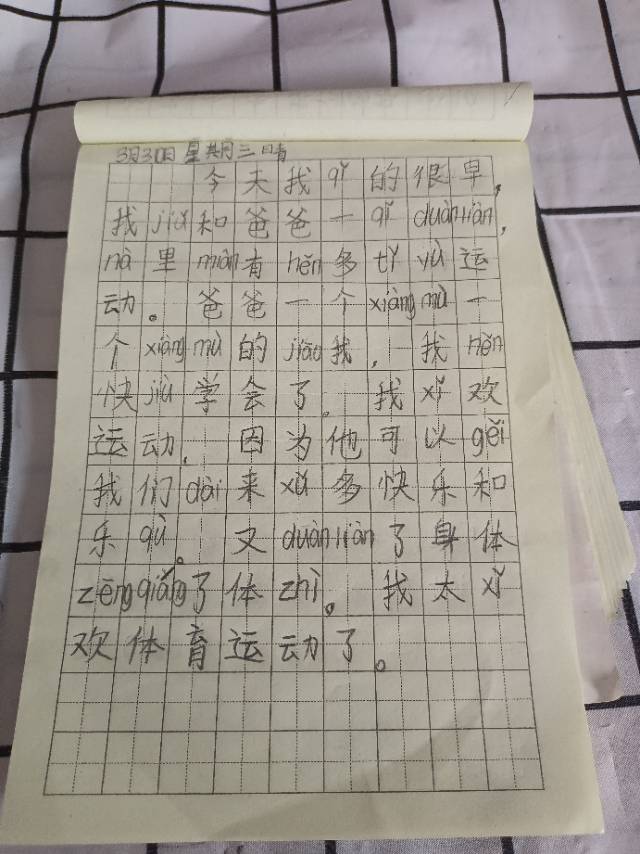 3月30日 星期三 晴
今天我qǐ的很早，
我jiù和爸爸一qǐ duànliàn，
nà里miàn有hěn多tǐ yù运
动。爸爸一个xiàng mù一
个xiàng mù的jiāo我，我hěn
快jiù学会了。我xǐ欢
运动，因为他可以gěi
我们dài来xǔ多快乐和
乐qù。又duànliàn了身体
zēngqiáng了体zhì。我太xǐ
欢体育运动了。